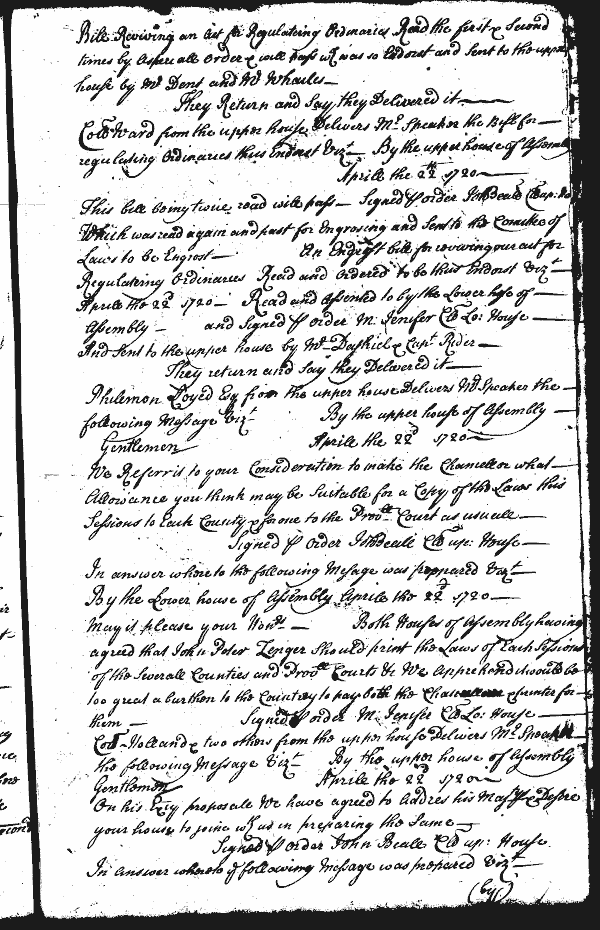 Bill Reviving an Act for Regulating Ordinaries Read the first & Second
times by Especiall Order & will pass wch was so Endorst and Sent to the upper
house by Mr Dent and Mr Wharles
They Return and Say they Delivered it
Collo Ward from the upper house Delivers Mr Speaker the Bill for
regulating Ordinaries thus Endorst Vizt By the upper house of Assembly
Aprile the 22th 1720
This bill being twice read will pass Signed P order Jno Beale Cl up: Ho
Which was read again and past for Engrosing and Sent to the Comittee of
Laws to be Engrost An Engrost bill for reviving our act for
Regulateing Ordinaries Read and Ordered to be thus Endorst Vizt
Aprile the 22d 1720 Read and assented to by the Lower hose of
Assembly and Signed P order M: Jenifer Cl Lo: House
And Sent to the upper house by Mr Dashiel & Capt Rider
They return and Say they Delivered it
Philemon Loyed Esq from the upper house Delivers Mr Speaker the
following Message Vizt By the upper house of Assembly
Gentlemen Aprile the 22d 1720
We Referr it to your Consideration to make the Chancellor what
Allowance you think may be Suitable for a Copy of the Laws this
Sessions to Each County & for one to the Provll Court as usuall
Signed P Order Jno Beale Cl up: House
In answer whereto the following Message was prepared Vizt
By the Lower house of Assembly Aprile the 22d 1720
May it please your Honrs Both Houses of Assembly having
agreed that John Peter Zenger Should print the Laws of Each Sessions
of the Severall Counties and Provll Courts &c We apprehend it would be
too great a burthen to the Country to pay both the Chancellor & printer for
them Signed P order M: Jenifer Cl Lo: House
Collo Holland & two others from the upper house Delivers Mr Speaker
the following Message Vizt By the upper house of Assembly
Gentlemen Aprile the 22d 1720
On his Excy proposale We have agreed to Addres his Maj & Desire
your house to joine wth us in preparing the Same
Signed P Order John Beale Cl up: House
In answer whereto ye following Message was prepared Vizt
(by)